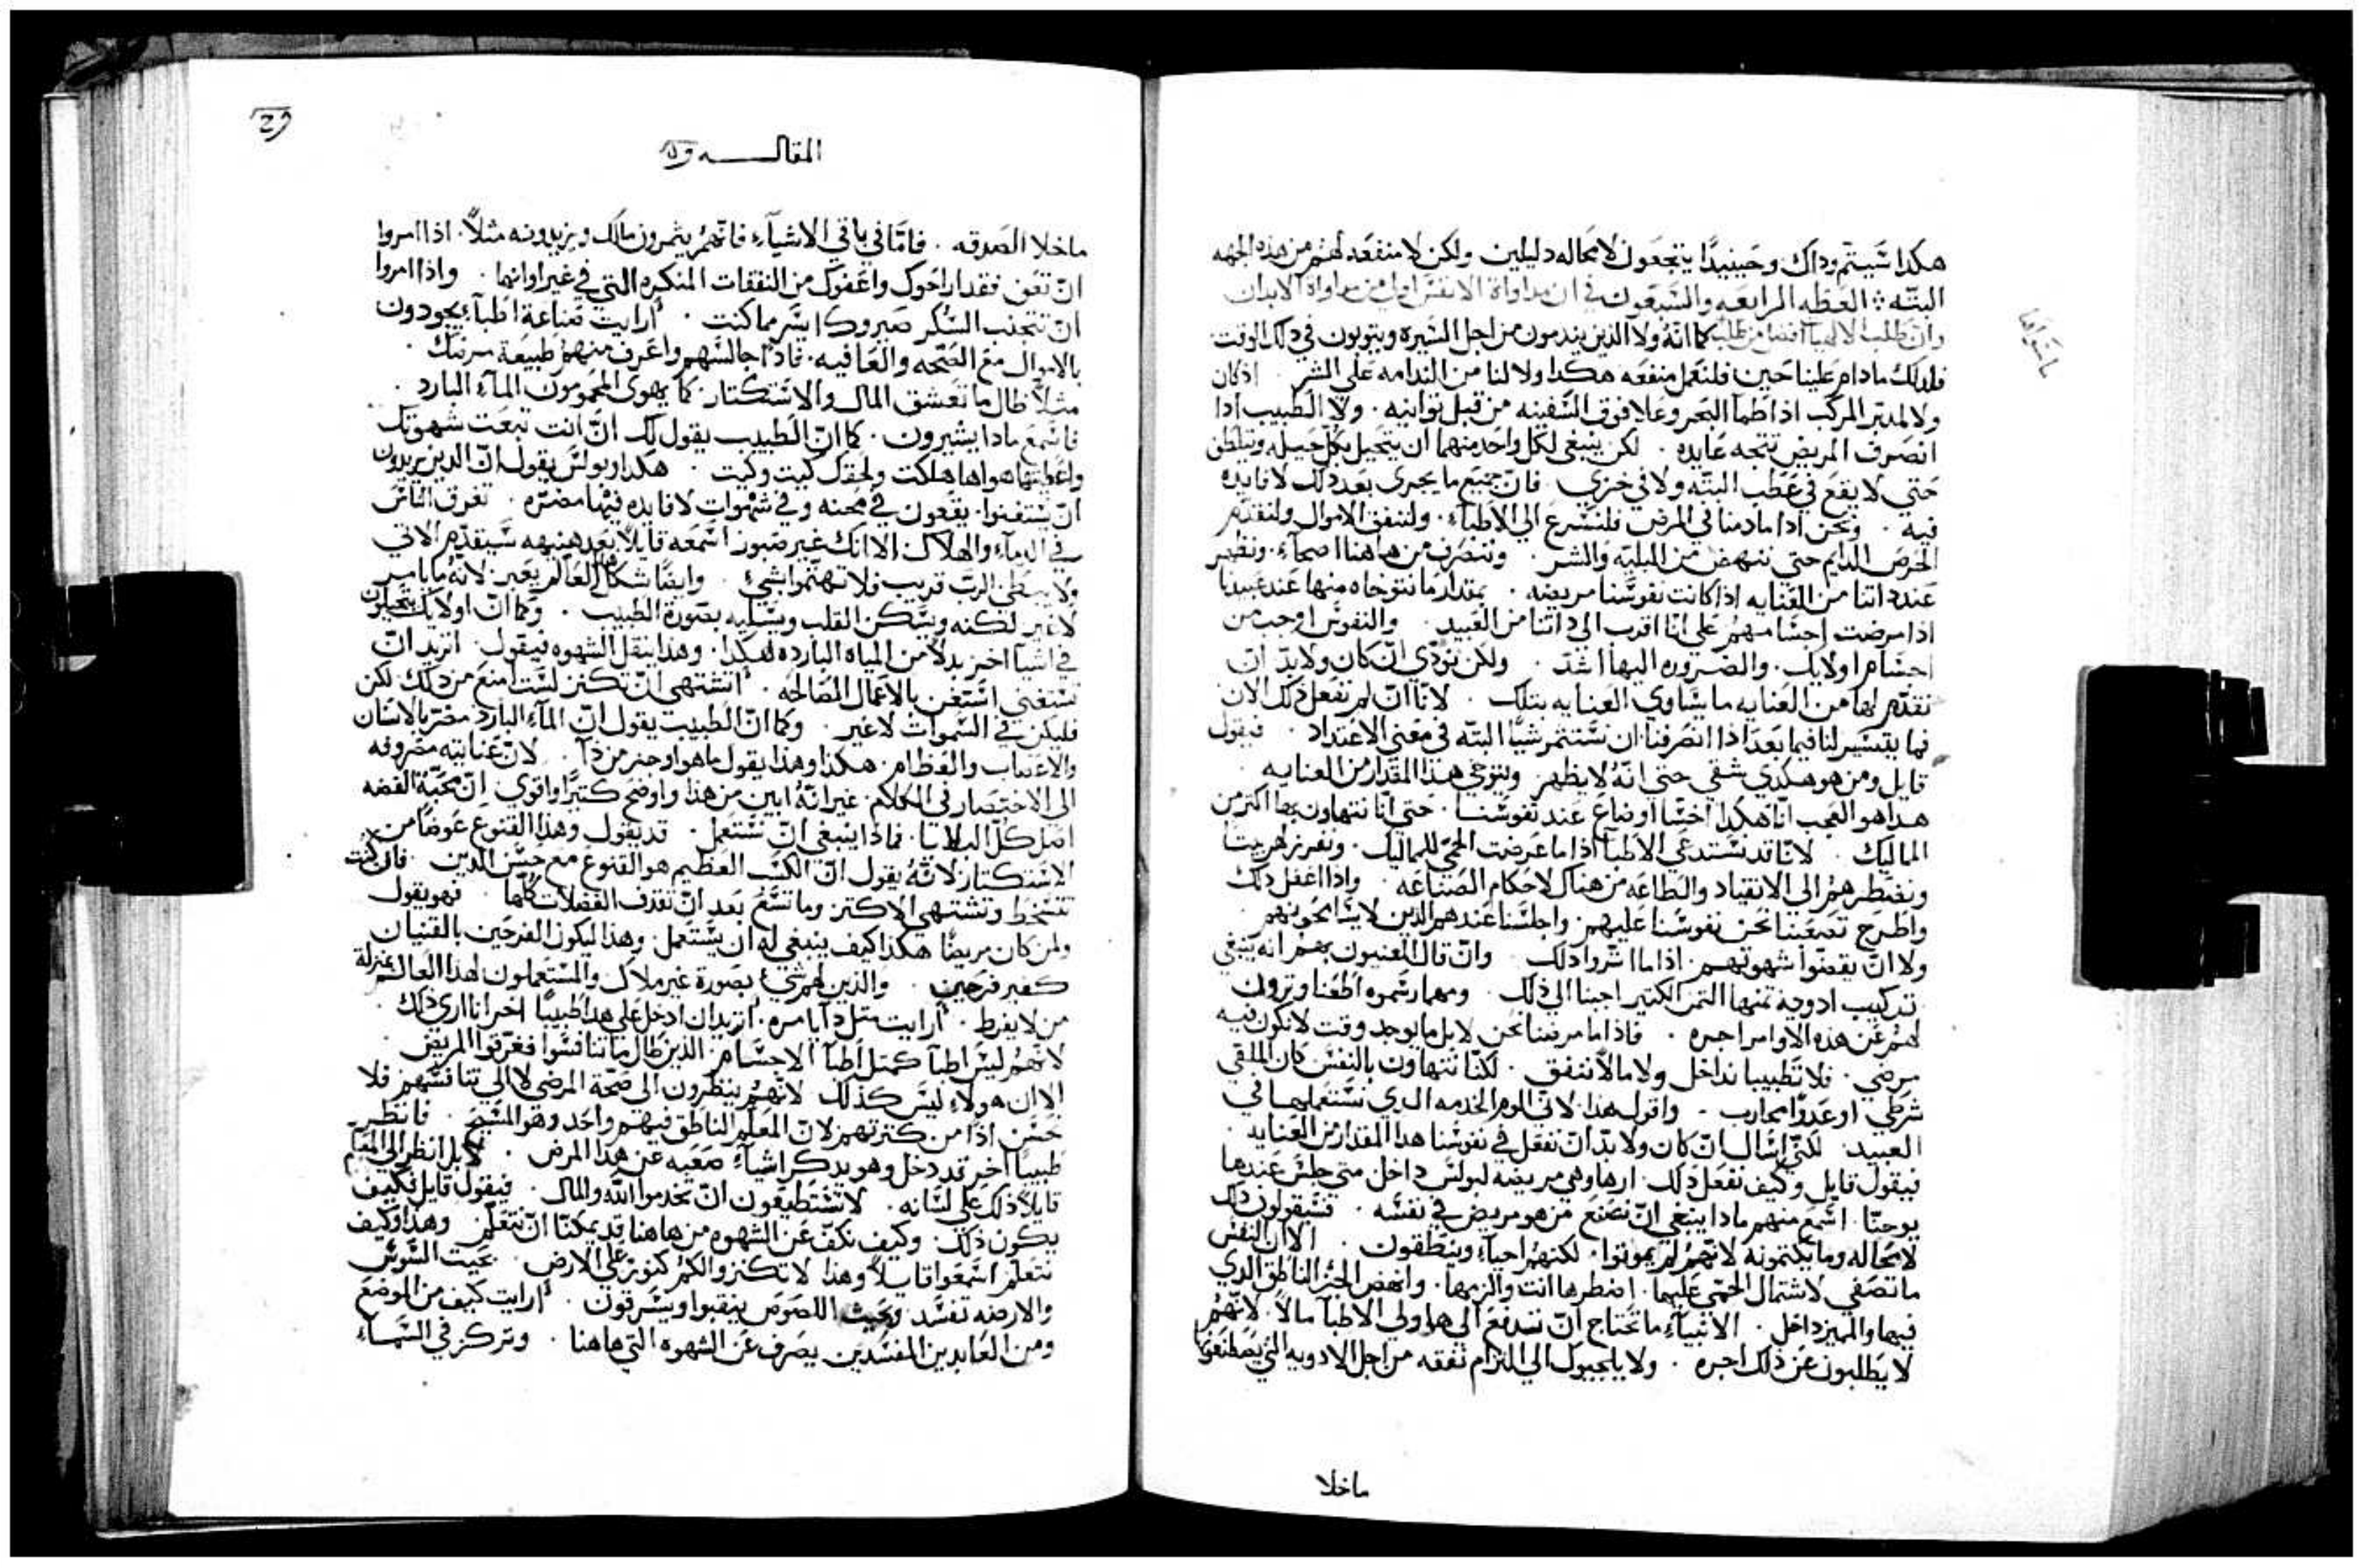 هكدا شيتم وداك وحينيدًا يتجعون لا محاله دليلين ولكن لا منفعه لهم من هذه الجهه
البتّه ❊ العظه الرابعه والسبعون في ان مداواة الانفس اولى من مداواة الابدان
وان طلب الالهيا افضل من طلب كما انّه ولا الذين يندمون من اجل الشيره ويتوبون في دلك الوقت
فلدلك مادام علينا حين فلنعمل منفعه هكدا ولا لنا من الندامه على الشر . اذ كان
ولا لمدبّر المركب اذا طما البحر وعلا فوق السّفينه من قبل توانيه . ولا الطبيب ادا
انصرف المريض تتجه عايده . لكن ينبغي لكل واحد منهما ان يتحيل بكل حيله ويتلطّف
حتي لا يقع في عطب البتّه ولا في خزي . فان جميع ما يجري بعد دلك لا فايده
فيه . ونحن ادا ما دمنا في المرض فلنسرع الي الاطبآء . ولننفق الاموال ولنقدّم
الحرص الدايم حتي ننهض من البليه والشر . وننصرف من هاهنا اصحآء . ونظهر
عند داتنا من العنايه اذا كانت نفوسنا مريضه . بمقدار ما نتوخاه منها عند عبيدنا
اذا مرضت اجسامهم علي انا اقرب الي داتنا من العبيد . والنفوس اوجب من
اجسام اولايك . والضروره اليها اشد . ولكن نودّي ان كان ولابدّ ان
نقدّم لها من العنايه ما يساوي العنايه بتلك . لانا ان لم نفعل ذلك الان
فما يتيسير لنا فيما بعد اذا انصرفنا ان نستثمر شيًا البتّه في معني الاعتداد . فيقول
قايل ومن هو هكدي شقي حتي انّه لا يظهر ويتوخي هذا المقدار من العنايه .
هدا هو العجب انا هكدا اخسّا اوضاع عند نفوسنا . حتي انا نتهاون بها اكتر من
الماليك . لانا قد نستدعي الاطبآ اذا ما عرضت الحمي للماليك . ونفرز لهم بيتا
ونضطرهم الي الانقياد والطاعه من هناك لاحكام الصناعه . واذا اغفل دلك
واطرح تصعبنا نحن نفوسنا عليهم . واجلسنا عندهم الدين لا يسامحونهم
ولا ان يقضوا شهوتهم . اذا ما اثروا دلك . وان قال المعنيون بهم انه ينبغي
تركيب ادويه تمنها التمن الكتير اجبنا الي ذلك . ومهما رسموه اطعنا ونزول
لهم عن هذه الاوامر اجره . فاذا ما مرضنا نحن لا بل ما يوجد وقت لا نكون فيه
مرضي . فلا تطبيبا نداخل ولا مالا ننفق . لكنا نتهاون بالنفس كان الملقي
شرطي او عدوًا محارب . واقول هدا لا اني الوم الخدمه الدي نستعملها في
العبيد . لكني اسال ان كان ولابدّ ان نفعل في نفوسنا هدا المقدار من العنايه .
فيقول قايل وكيف نفعل ذلك . ارها وهي مريضه لبولس داخل متي جلس عندها
يوحنّا . اسمع منهم مادا ينبغي ان نصنع من هو مريض في نفسه . فسيقولون دلك
لا محاله وما يكتمونه لانهم لم يموتوا . لكنهم احيآء وينطقون . الا ان النفس
ما تصغي لاشتمال الحمّي عليها . اضطرها انت والزمها . وانهض الجز الناطق الدي
فيها والمميز داخل . الانبيآء ما تحتاج ان تدفع الي هاولي الاطبآ مالاً . لانهم
لا يطلبون عن ذلك اجره . ولا يلجيوك الي التزام نفقه من اجل الادويه التي يصطنعونها
ما خلا
المقالــــه
ما خلا الصدقه . فامّا في باقي الاشيآء فانهم يثمرون مالك ويزيدونه مثلاً . اذا امروا
ان تعف فقد اراحوك واعفوك من النفقات المنكره التي في غير اوانها . واذا امروا
ان تتجنب السكر صيروك ايسر مما كنت . أرايت صناعة اطبآء يجودون
بالاموال مع الصحّه والعافيه . فاذًا جالسهم واعرف منهم طبيعة مرضك .
مثلاً طال ما تعشق المال والاستكتار . كما يهوي المحمومون المآء البارد .
فاسمع مادا يشيرون . كما ان الطبيب يقول لك ان انت تبعت شهوتك
واعطيتها هواها هلكت ولحقك كيت وكيت . هكدا وبولس يقول ان الدين يريدون
ان يستغنوا . يقعون في محنه وفي شهوات لا فايده فيها مضرّه . تغرق الناس
في الدمآء والهلاك . الا انك غير صبور اسمعه قايلاً بعد هنيهه سيقدّم الاتي
ولا يبطي الرب قريب فلا تهتموا شي . وايضًا شكل العالم يعبر لانه ما يامر
لا غير لكنه ويسكن القلب ويسليه بصورة الطبيب . وكما ان اولايك يتحيلون
في اشيآ اخر بدلاً من المياه البارده هكدا . وهدا ينقل الشهوه فيقول . اتريد ان
تستغني استغن بالاعمال الصالحه . أتشتهي ان تكنز لست امنع من دلك لكن
فليكن في السموات لا غير . وكما ان الطبيب يقول ان المآء البارد مضر بالاسنان
والاعصاب والعظام . هكدا وهدا يقول ما هو اوجز من ذآ . لان عنايته مصروفه
الي الاختصار في الكلام . غير انه ابين من هذا واوضح كتيرًا واقوي . ان محبّة الفضه
اصل كل البلايا . فماذا ينبغي ان نستعمل . قد يقول وهدا القنوع عوضًا من
الاستكتار لانّه يقول ان الكسب العظيم هو القنوع مع حسن الدين . فان كنت
تتسخط وتشتهي الاكتر وما تسع بعد ان تقذف الفضلات كلها . فهو يقول
ولمن كان مريضًا هكذا كيف ينبغي له ان يستعمل . وهدا ليكون الفرحين بالقنيان
كغير فرحين . والذين لهم شي بصورة غير ملاك والمستعملون لهدا العالم بمنزلة
من لا يفرط . أرايت متل دآ يا مره . اتريد ان ادخل علي هدا طبيبًا اخر انا اري ذلك .
لانهم ليس اطبآ كمتل اطبآ الاجسام . الذين طال ما تنافسوا فغرّقوا المريض .
الا ان هولاء ليس كذلك لانهم ينظرون الي صحّة المرضي لا الي تنافسهم فلا
تحسن اذًا من كترتهم لان المعلم الناطق فيهم واحد وهو المسيح . فانظر
طبيبًا اخر قد دخل وهو يدكر اشيآء صعبه عن هدا المرض . لا بل انظر الي المعلم
قايلاً ذلك علي لسانه . لا تستطيعون ان تخدموا الله والمال . فيقول قايل فكيف
يكون ذلك . وكيف نكف عن الشهوه من هاهنا قد يمكنّا ان نتعلم . وهدا وكيف
نتعلم اسمعوا قايلاً وهذا لا تكنزوا لكم كنوز علي الارض . بحيت السوس
والارضه تفسد وبحيت اللصوص ينقبوا ويسرقون . أرايت كيف من الموضع
ومن العابدين المفسدين يصرف عن الشهوه التي هاهنا . وتركز في السمآء